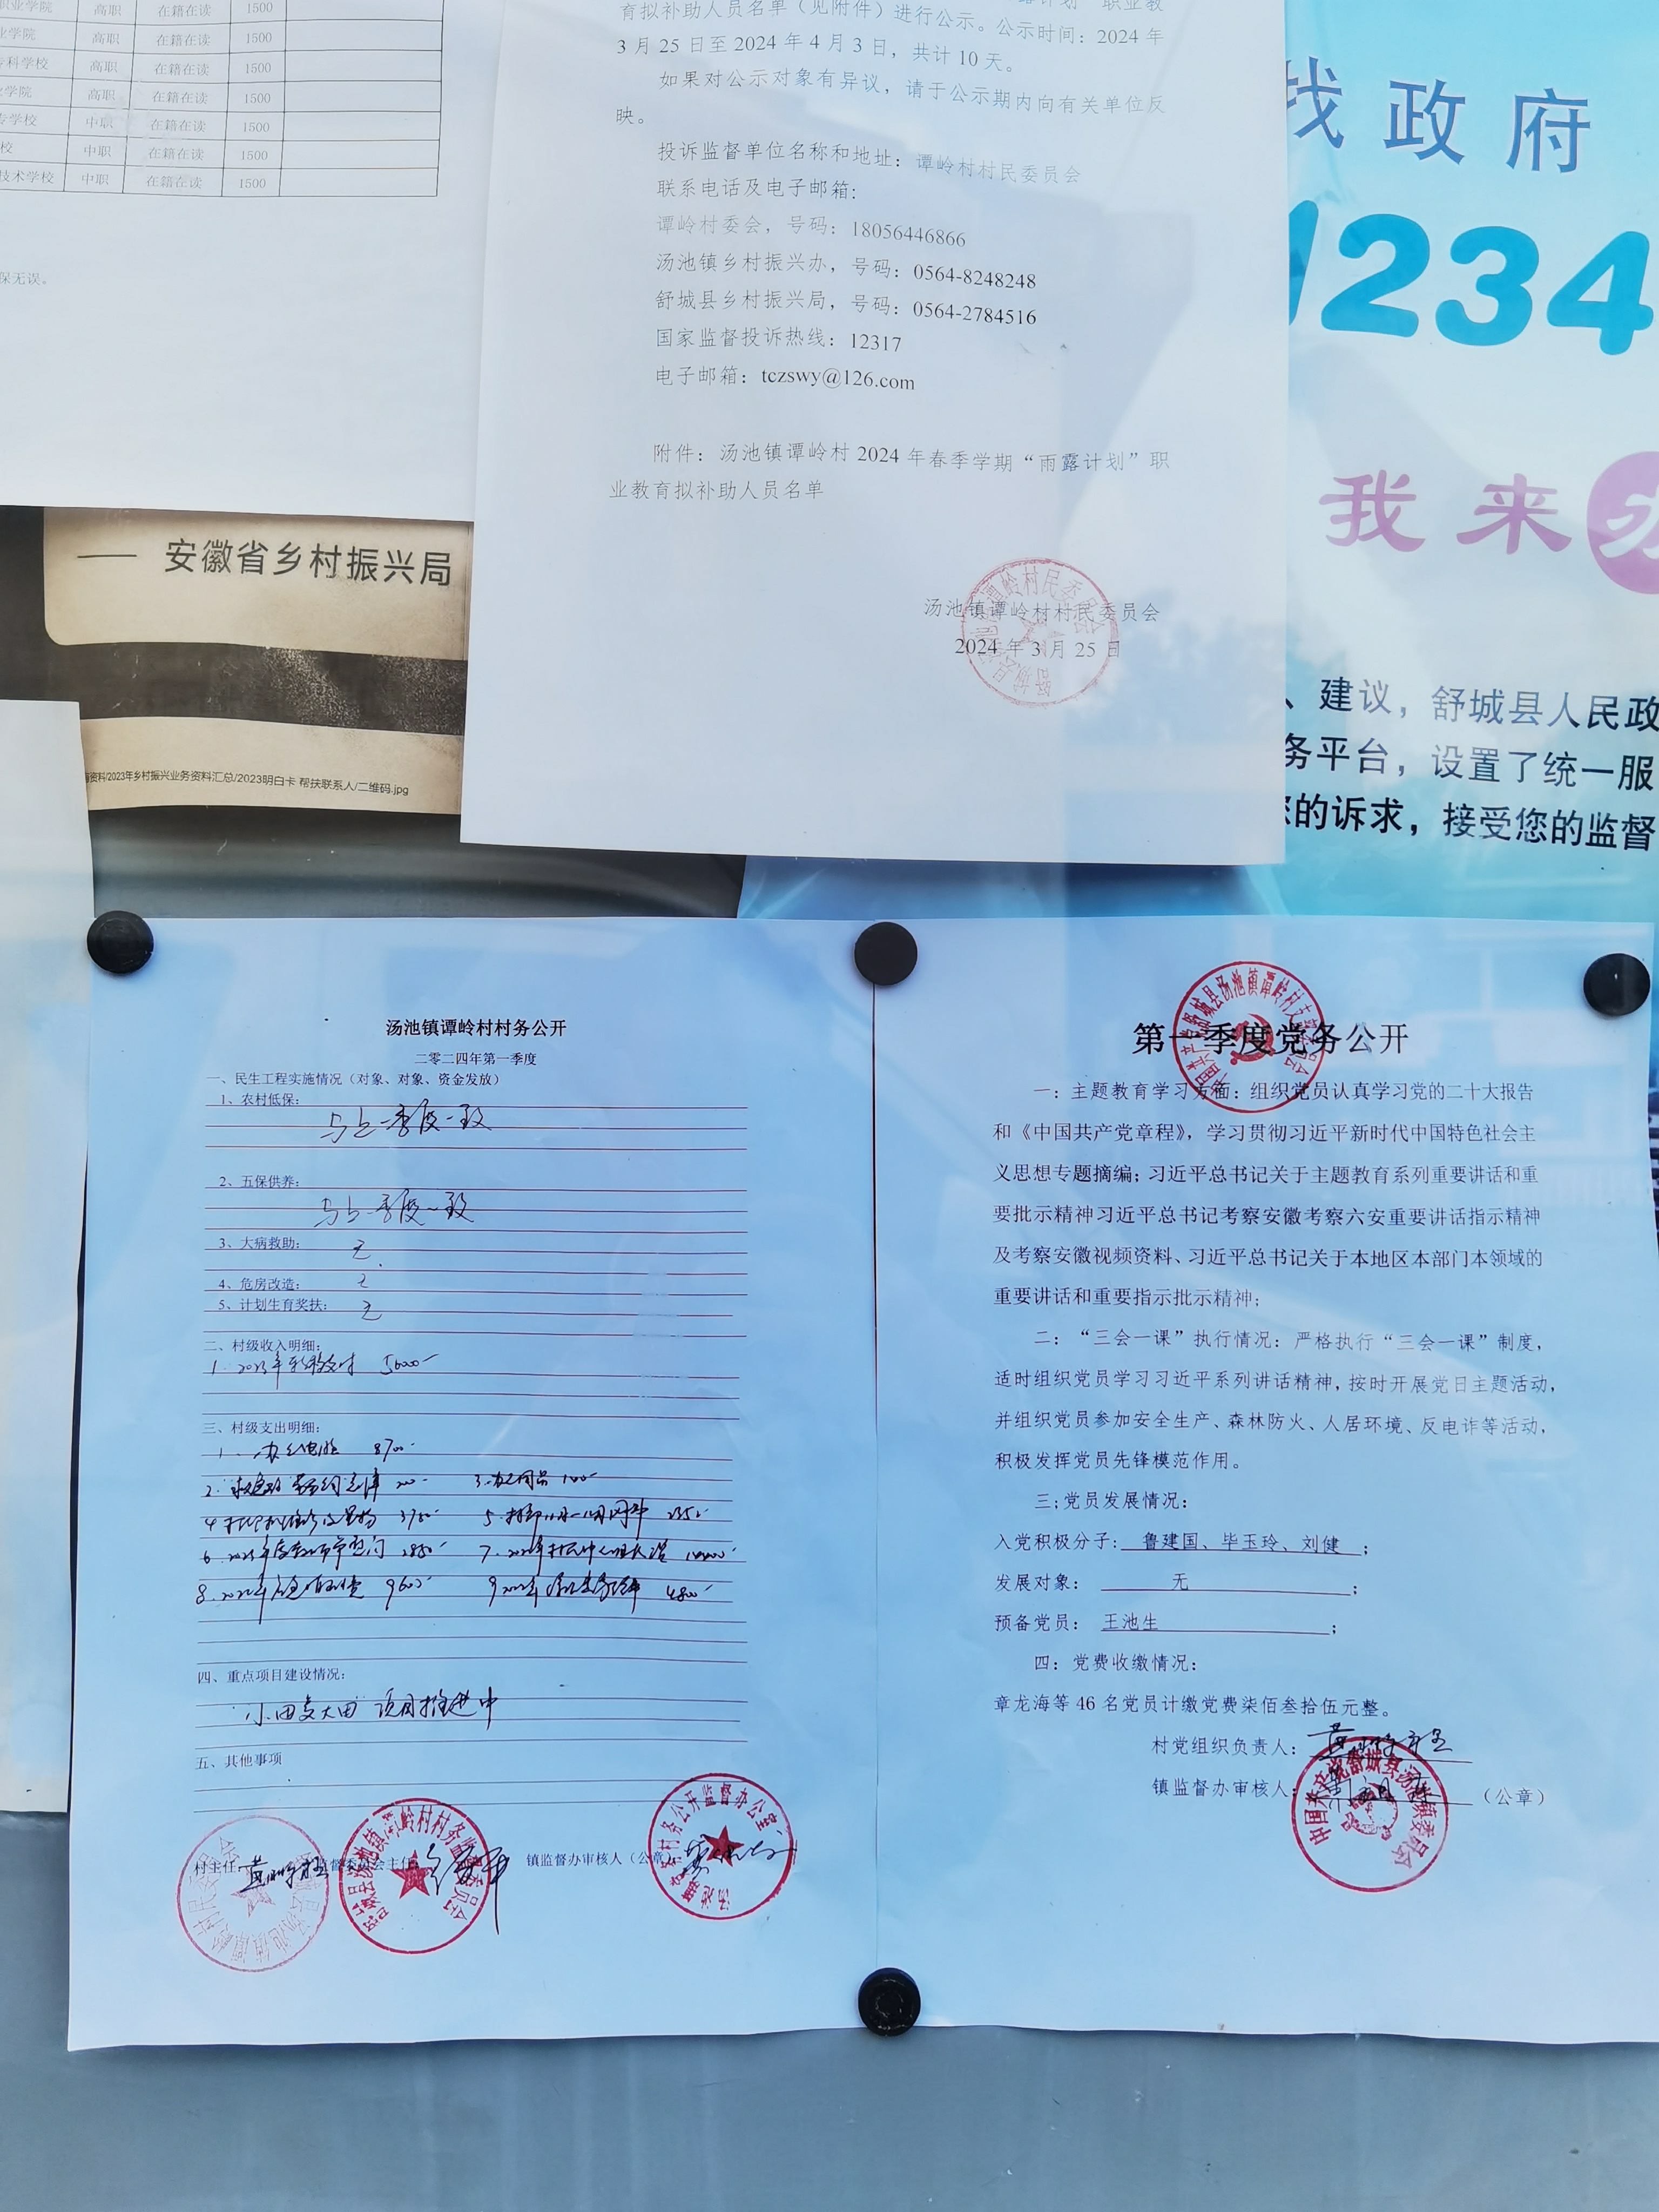 职业学院 高职 在籍在读 1500
业学院 高职 在籍在读 1500
专科学校 高职 在籍在读 1500
业学院 高职 在籍在读 1500
专学校 中职 在籍在读 1500
校 中职 在籍在读 1500
技术学校 中职 在籍在读 1500
保无误。
育拟补助人员名单（见附件）进行公示。公示时间：2024 年
3 月 25 日至 2024 年 4 月 3 日，共计 10 天。
如果对公示对象有异议，请于公示期内向有关单位反
映。
投诉监督单位名称和地址：谭岭村村民委员会
联系电话及电子邮箱：
谭岭村委会，号码：18056446866
汤池镇乡村振兴办，号码：0564-8248248
舒城县乡村振兴局，号码：0564-2784516
国家监督投诉热线：12317
电子邮箱：tczswy@126.com
附件：汤池镇谭岭村 2024 年春季学期“雨露计划”职
业教育拟补助人员名单
汤池镇谭岭村村民委员会
2024 年 3 月 25 日
找政府
1234
我来办
、建议，舒城县人民政
务平台，设置了统一服
您的诉求，接受您的监督
—— 安徽省乡村振兴局
资料/2023年乡村振兴业务资料汇总/2023明白卡 帮扶联系人/二维码.jpg
汤池镇谭岭村村务公开
二零二四年第一季度
一、民生工程实施情况（对象、对象、资金发放）
1、农村低保：
与上一季度一致
2、五保供养：
与上一季度一致
3、大病救助： 无
4、危房改造： 无
5、计划生育奖扶： 无
二、村级收入明细：
1. 2023年转移支付 5000
三、村级支出明细：
1. 办公电脑 8700
2. 3.办公用品 100
4 3780 5.
6. 2023年度 7.
8. 2022年 9600 9
四、重点项目建设情况：
小田变大田 项目推进中
五、其他事项
村主任 监督委员会主任： 镇监督办审核人（公章）
第一季度党务公开
一：主题教育学习方面：组织党员认真学习党的二十大报告
和《中国共产党章程》，学习贯彻习近平新时代中国特色社会主
义思想专题摘编；习近平总书记关于主题教育系列重要讲话和重
要批示精神习近平总书记考察安徽考察六安重要讲话指示精神
及考察安徽视频资料、习近平总书记关于本地区本部门本领域的
重要讲话和重要指示批示精神；
二：“三会一课”执行情况：严格执行“三会一课”制度，
适时组织党员学习习近平系列讲话精神，按时开展党日主题活动，
并组织党员参加安全生产、森林防火、人居环境、反电诈等活动，
积极发挥党员先锋模范作用。
三;党员发展情况：
入党积极分子： 鲁建国、毕玉玲、刘健 ；
发展对象： 无 ；
预备党员： 王池生 ；
四：党费收缴情况：
章龙海等 46 名党员计缴党费柒佰叁拾伍元整。
村党组织负责人：
镇监督办审核人： （公章）